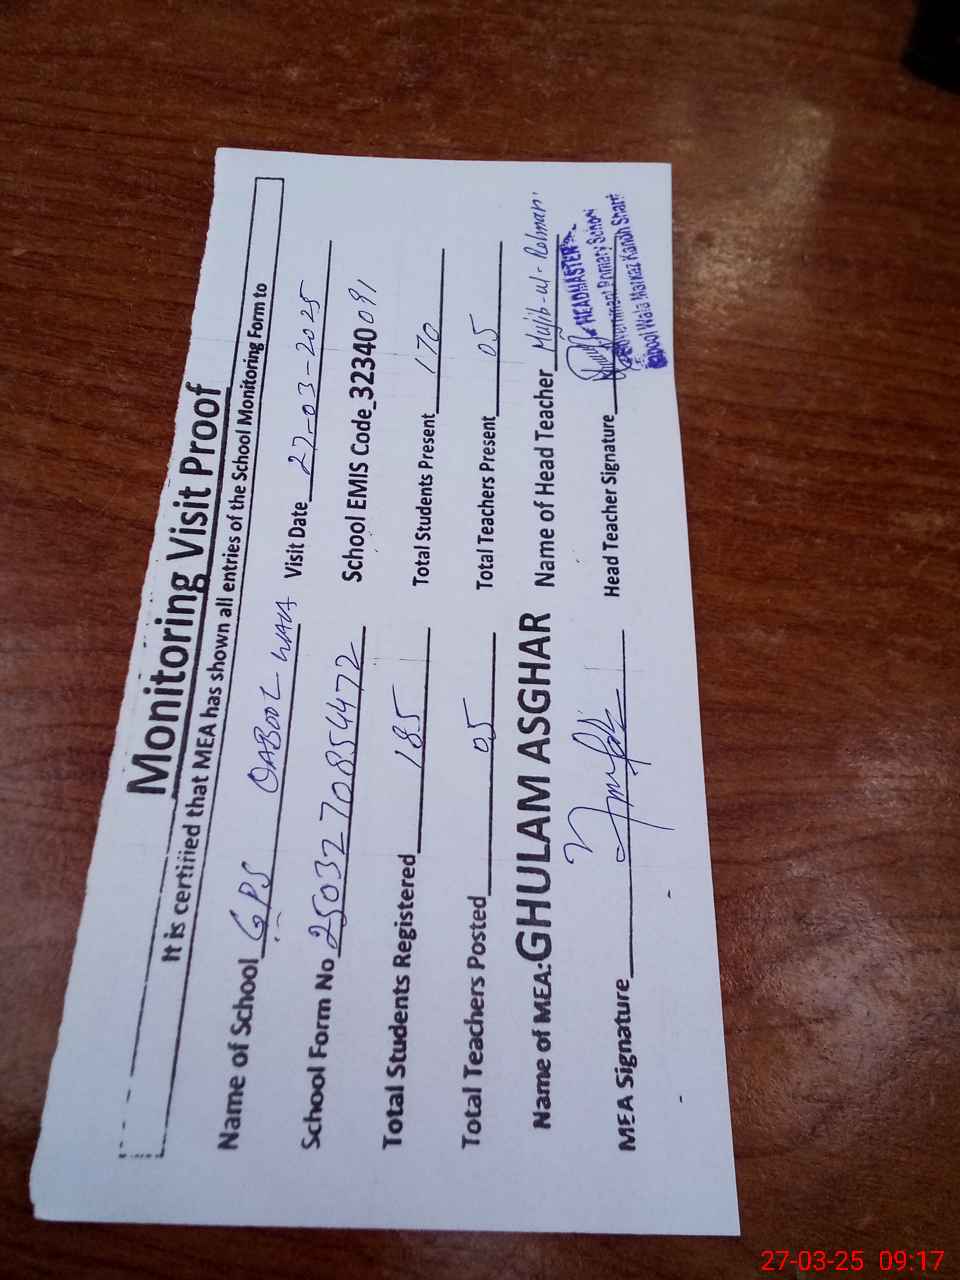 Monitoring Visit Proof
It is certified that MEA has shown all entries of the School Monitoring Form to
Name of School GPS QABOOL WALA Visit Date 27-03-2025
School Form No 2503270854472 School EMIS Code_32340091
Total Students Registered 185 Total Students Present 170
Total Teachers Posted 05 Total Teachers Present 05
Name of MEA: GHULAM ASGHAR Name of Head Teacher Mujib-ur-Rehman
MEA Signature Head Teacher Signature
HEADMASTER
Government Primary School
Qabool Wala Markaz
27-03-25 09:17